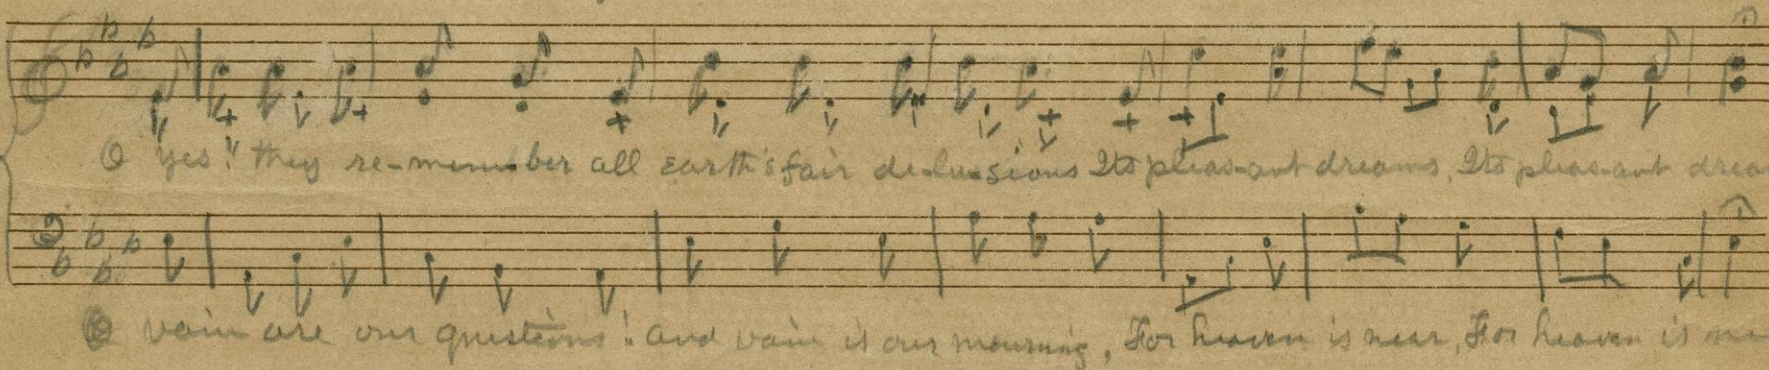 O yes! they re-mem-ber all earth's fair de-lu-sions Its pleas-ant dreams, Its pleas-ant drea
O vain are our questions! and vain is our mourning, For heaven is near, For heaven is ne